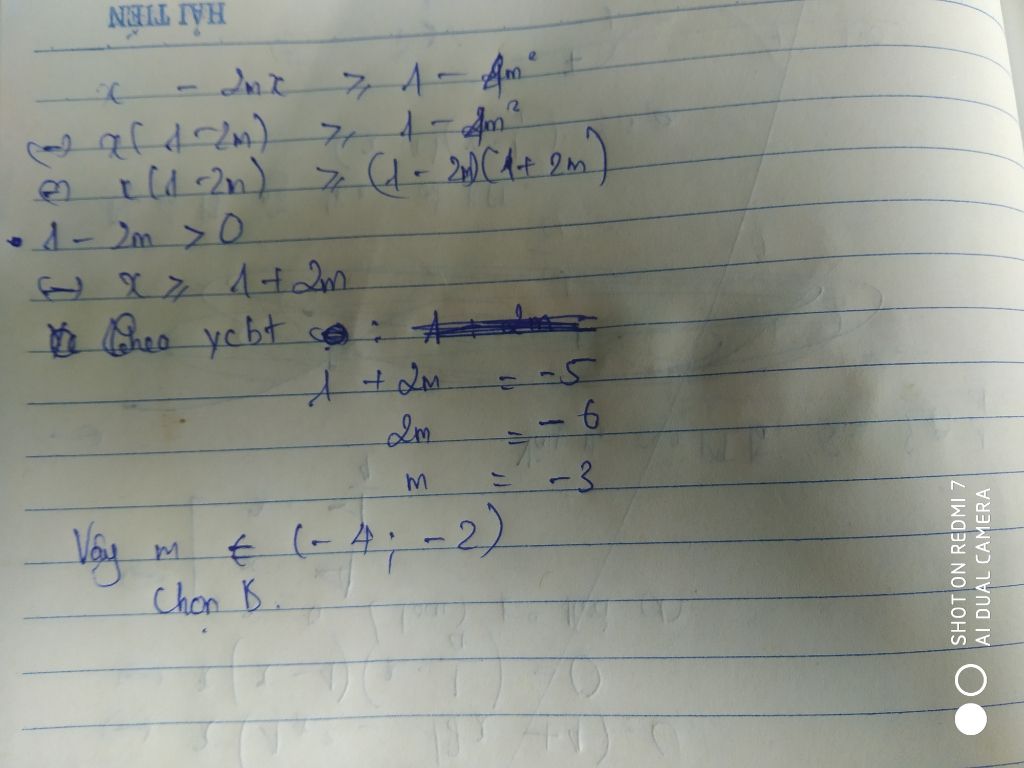 HẢI TIẾN
x - 2mx ≥ 1 - 4m²
⇔ x(1-2m) ≥ 1 - 4m²
⇔ x(1-2m) ≥ (1-2m)(1+2m)
• 1 - 2m > 0
⇔ x ≥ 1+2m
Theo ycbt :
1 + 2m = -5
2m = -6
m = -3
Vậy m ∈ (-4; -2)
Chọn B.
SHOT ON REDMI 7
AI DUAL CAMERA